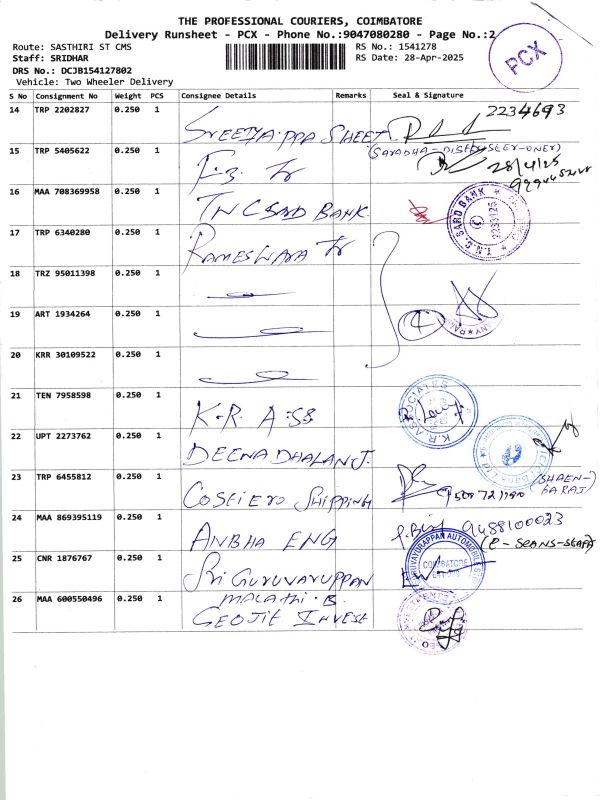 THE PROFESSIONAL COURIERS, COIMBATORE
Delivery Runsheet - PCX - Phone No.:9047080280 - Page No.:2
Route: SASTHIRI ST CMS RS No.: 1541278
Staff: SRIDHAR RS Date: 28-Apr-2025
DRS No.: DCJB154127802
Vehicle: Two Wheeler Delivery
PCX
S No Consignment No Weight PCS Consignee Details Remarks Seal & Signature
14 TRP 2202827 0.250 1 SREEYAPPA SHEET 2234693
15 TRP 5405622 0.250 1 28/4/25
16 MAA 708369958 0.250 1 TNCSARD BANK T.N.C. SARD BANK
17 TRP 6340280 0.250 1 RAMESWARA Tr
18 TRZ 95011398 0.250 1
19 ART 1934264 0.250 1
20 KRR 30109522 0.250 1
21 TEN 7958598 0.250 1 K.R. ASS K.R. ASSOCIATES
22 UPT 2273762 0.250 1 DEENADHALAN J.
23 TRP 6455812 0.250 1 COSTIERO SHIPPING
24 MAA 869395119 0.250 1 ANBHA ENG 9488100023
25 CNR 1876767 0.250 1 SRI GURUVARUPPAN COIMBATORE
26 MAA 600550496 0.250 1 MALATHI.B
GEOJIT INVEST